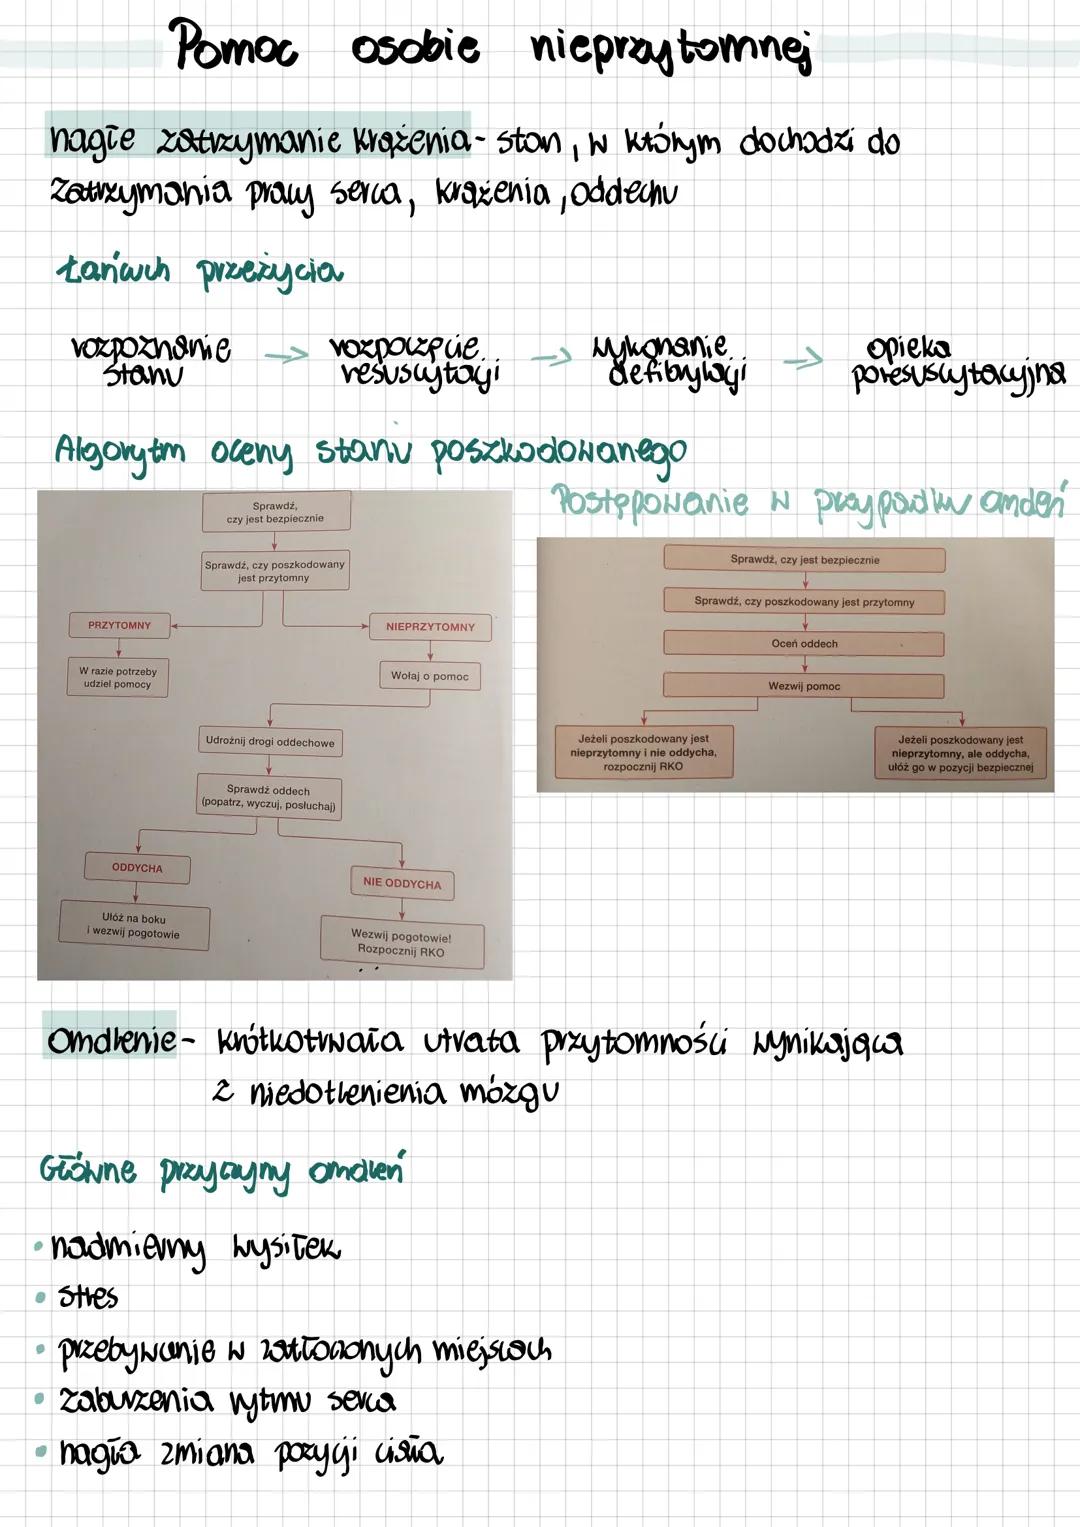 Pomoc osobie nieprzytomnej
nagłe zatrzymanie krążenia - stan, w którym dochodzi do
zatrzymania pracy serca, krążenia, oddechu
Łańcuch przeżycia
rozpoznanie stanu → rozpoczęcie resuscytacji → wykonanie defibrylacji → opieka poresuscytacyjna
Algorytm oceny stanu poszkodowanego
Sprawdź,
czy jest bezpiecznie
Sprawdź, czy poszkodowany
jest przytomny
PRZYTOMNY
NIEPRZYTOMNY
W razie potrzeby
udziel pomocy
Wołaj o pomoc
Udrożnij drogi oddechowe
Sprawdź oddech
(popatrz, wyczuj, posłuchaj)
ODDYCHA
NIE ODDYCHA
Ułóż na boku
i wezwij pogotowie
Wezwij pogotowie!
Rozpocznij RKO
Postępowanie w przypadku omdleń
Sprawdź, czy jest bezpiecznie
Sprawdź, czy poszkodowany jest przytomny
Oceń oddech
Wezwij pomoc
Jeżeli poszkodowany jest
nieprzytomny i nie oddycha,
rozpocznij RKO
Jeżeli poszkodowany jest
nieprzytomny, ale oddycha,
ułóż go w pozycji bezpiecznej
Omdlenie - krótkotrwała utrata przytomności wynikająca
z niedotlenienia mózgu
Główne przyczyny omdleń
• nadmierny wysiłek
• stres
• przebywanie w zatłoczonych miejscach
• zaburzenia rytmu serca
• nagła zmiana pozycji ciała